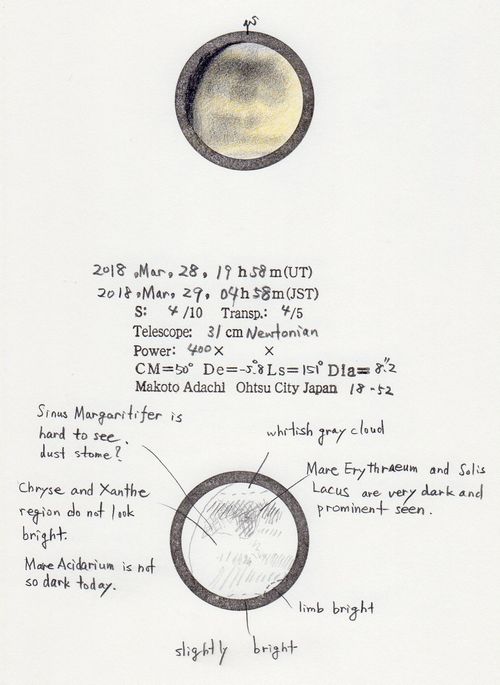 2018, Mar, 28, 19h58m(UT)
2018, Mar, 29, 04h58m(JST)
S: 4/10 Transp.: 4/5
Telescope: 31cm Newtonian
Power: 400× ×
CM=50° De=-5.°8 Ls=151° Dia=8."2
Makoto Adachi Ohtsu City Japan 18-52
Sinus Margaritifer is
hard to see.
dust stome?
whitish gray cloud
Mare Erythraeum and Solis
Lacus are very dark and
prominent seen.
Chryse and Xanthe
region do not look
bright.
Mare Acidarium is not
so dark today.
limb bright
slightly bright